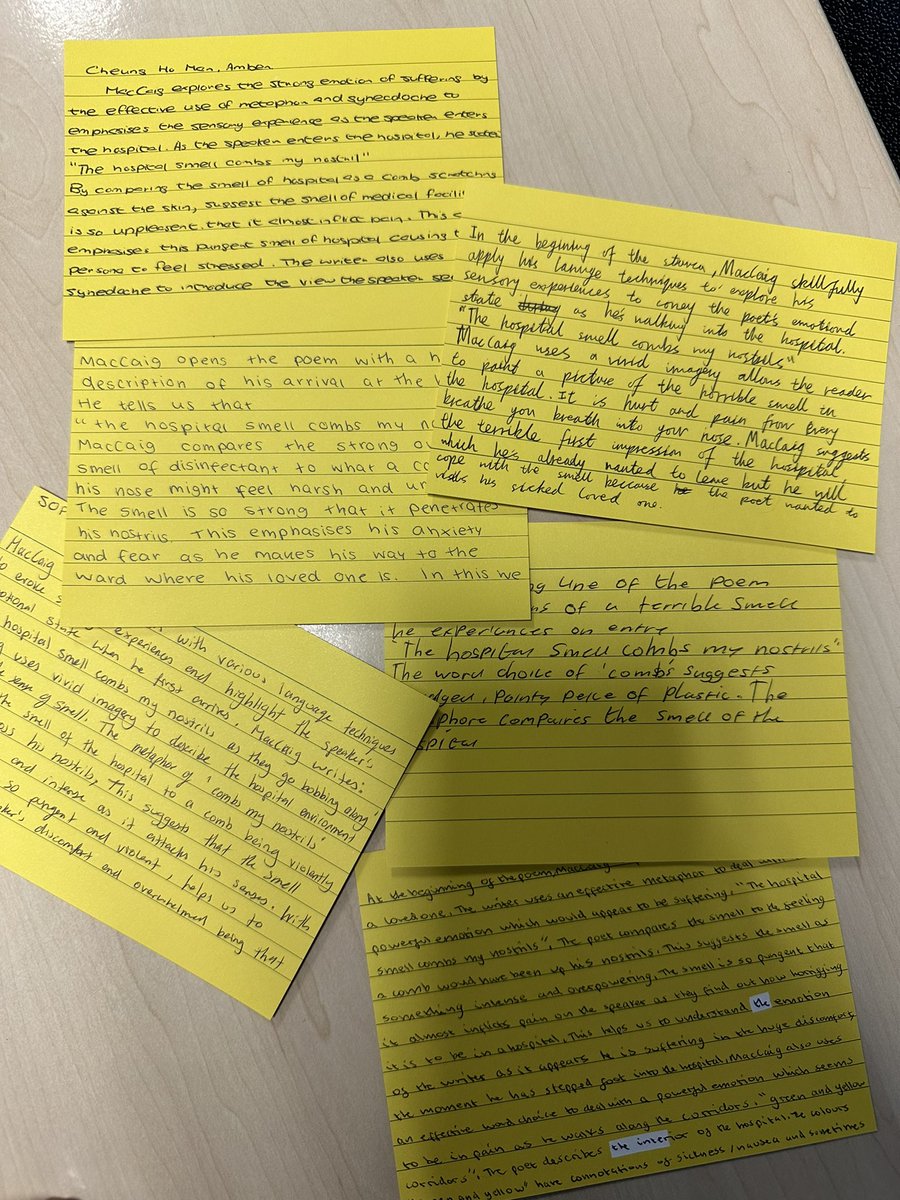 Cheung Ho Man, Amber
MacCaig explores the strong emotion of suffering by
the effective use of metaphor and synecdoche to
emphasises the sensory experience as the speaker enters
the hospital. As the speaker enters the hospital, he
"The hospital smell combs my nostril"
By comparing the smell of hospital as a comb scratching
against the skin, suggest the smell of medical
is so unpleasent that it almost inflict pain. This
emphasises this pungent smell of hospital causing
persona to feel stressed. The writer also uses
synedoche to introduce the view the speaker
In the begining of the stanza, MacCaig skillfully
apply his languge techniques to explore his
sensory experiences to convey the poet's emotional
state as he's walking into the hospital.
"The hospital smell combs my nostrils"
MacCaig uses a vivid imagery allows the reader
to paint a picture of the horrible smell in
the hospital. It is hurt and pain from every
breathe you breath into your nose. MacCaig suggests
the terrible first impression of the hospital,
which he's already wanted to leave but he will
cope with the smell because the poet wanted to
visits his sicked loved one.
MacCaig opens the poem with a
description of his arrival at the
He tells us that
"the hospital smell combs my
MacCaig compares the strong
smell of disinfectant to what a
his nose might feel harsh and
The smell is so strong that it penetrates
his nostrils. This emphasises his anxiety
and fear as he makes his way to the
ward where his loved one is. In this we
MacCaig
to evoke
with various language techniques
experiences and highlight the speaker's
state when he first arrives, MacCaig writes:
hospital smell combs my nostrils as they go bobbing along'
uses vivid imagery to describe the hospital environment
sense of smell. The metaphor of 'combs my nostrils'
smell of the hospital to a comb being violently
his nostrils, This suggests that the smell
and intense as it attacks his senses. With
so pungent and violent, helps us to
discomfort and overwhelmed being that
line of the poem
of a terrible smell
he experiences on entry
"The hospital smell combs my nostrils"
The word choice of 'combs' suggests
pointy peice of plastic. The
compaires the smell of the
At the beginning of the poem, MacCaig
a loved one. The writer uses an effective metaphor to deal
powerful emotion which would appear to be suffering, "The hospital
smell combs my nostrils". The poet compares the smell to the feeling
a comb would have been up his nostrils. This suggests the smell as
something intense and overpowering. The smell is so pungent that
it almost inflicts pain on the speaker as they find out how horrifying
it is to be in a hospital. This helps us to understand the emotion
of the writer as it appears he is suffering in the huge discomfort,
the moment he has stepped foot into the hospital. MacCaig also uses
an effective word choice to deal with a powerful emotion which seems
to be in pain as he walks along the corridors, "green and yellow
corridors". The poet describes the interior of the hospital. The colours
and yellow" have connotations of sickness/nausea and sometimes